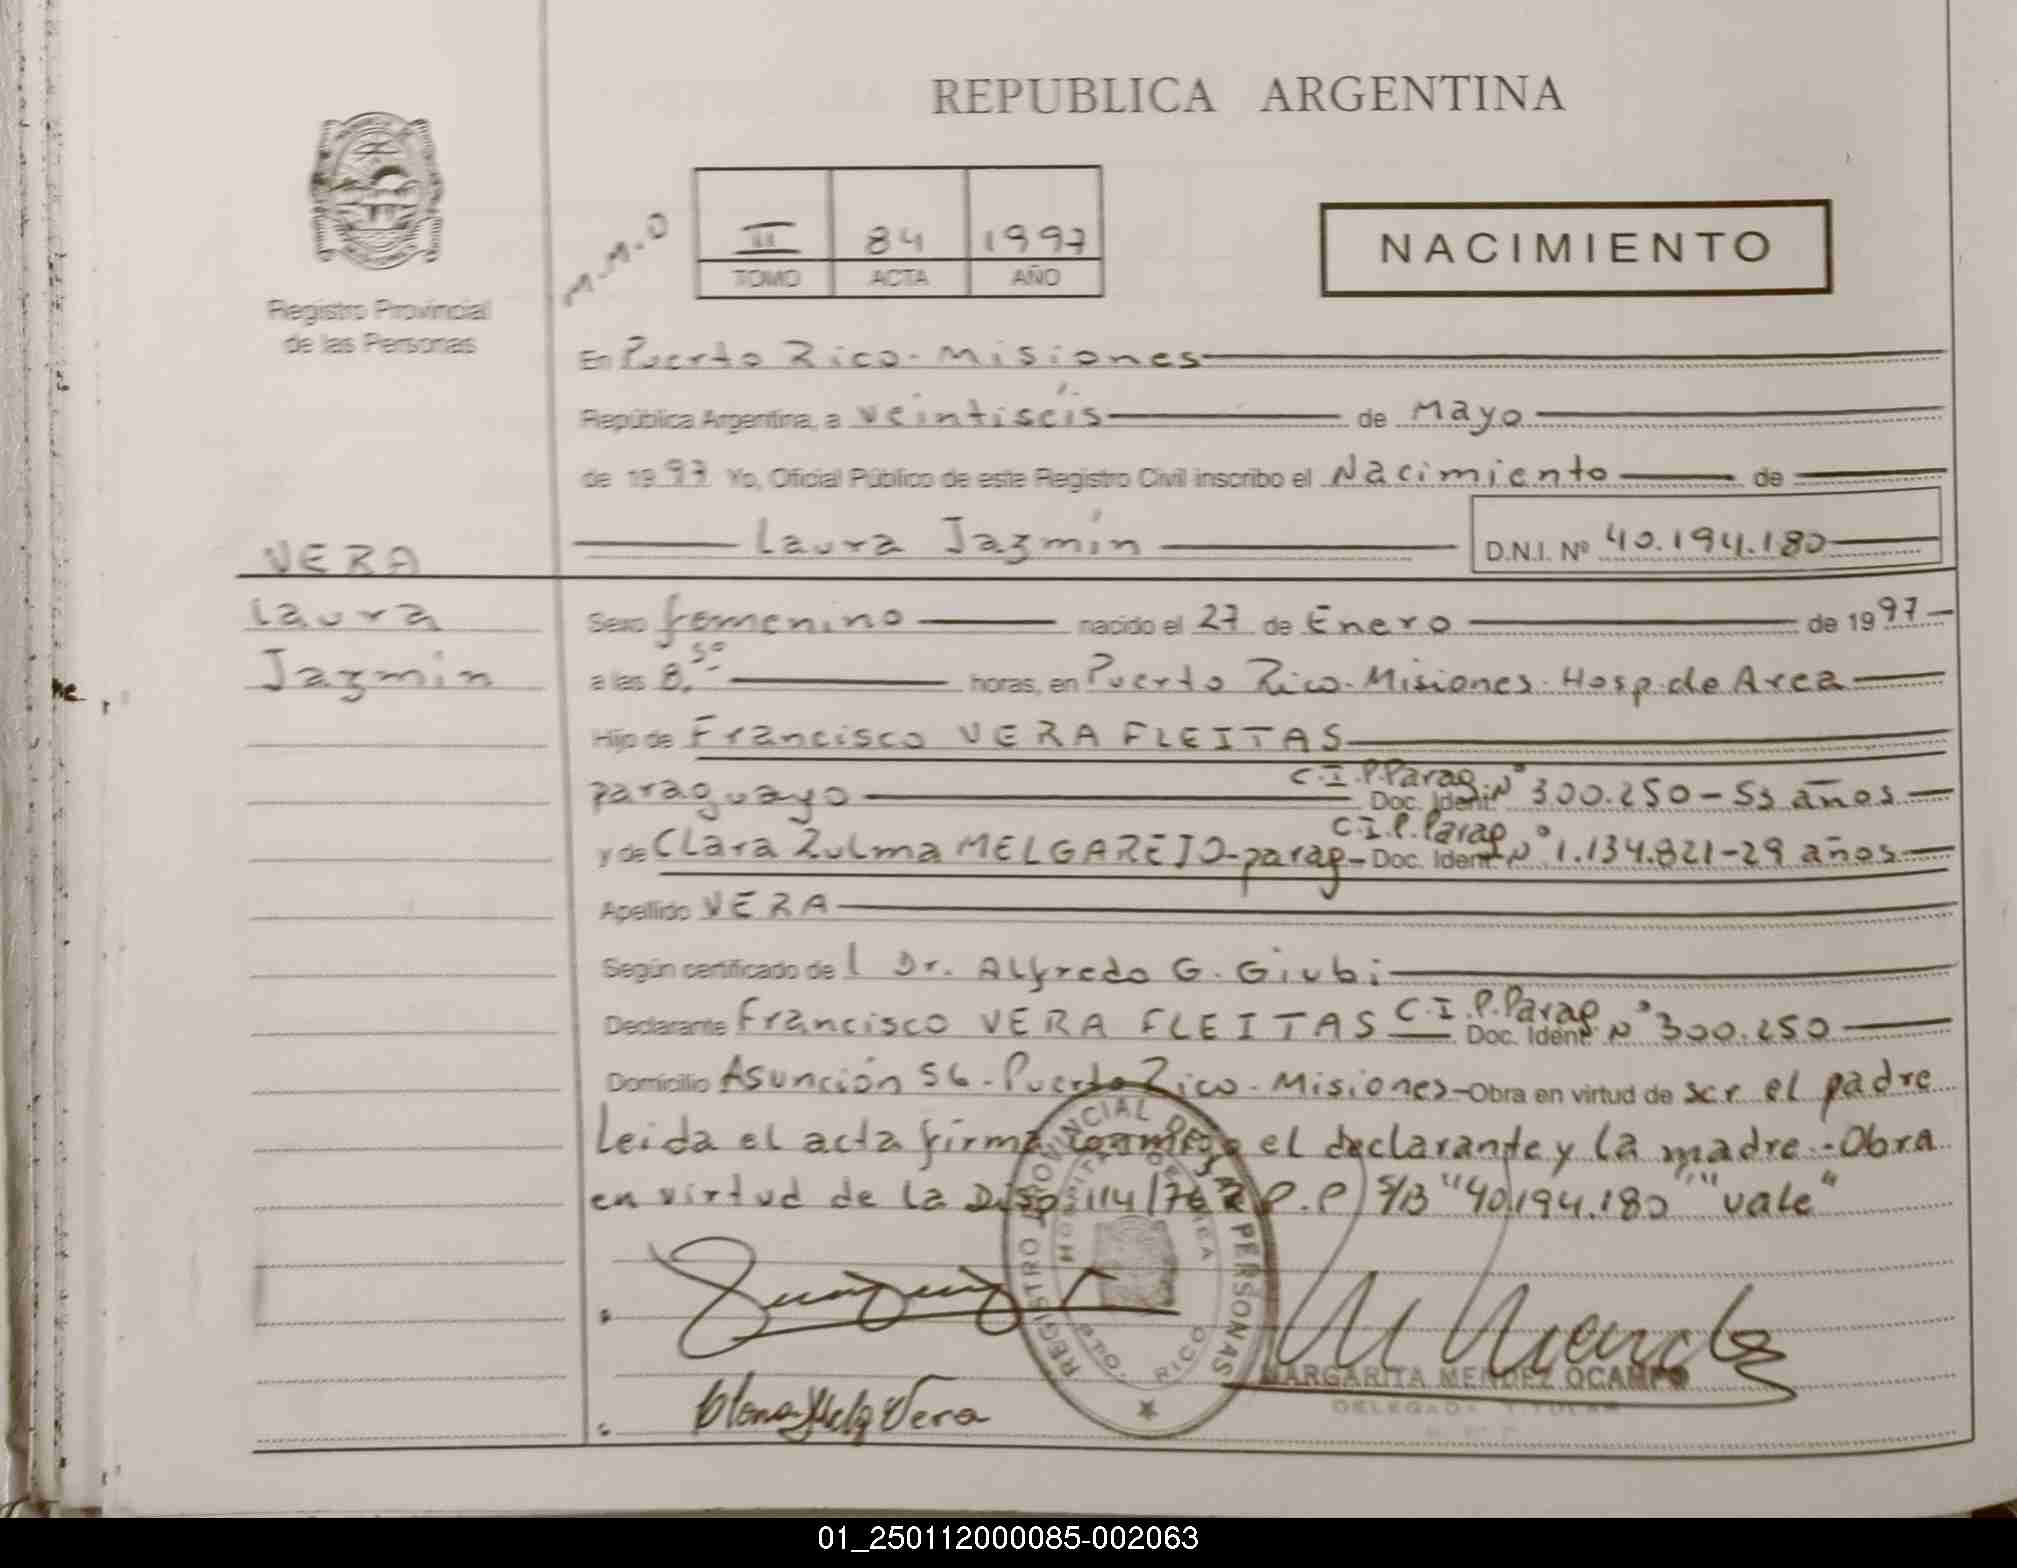 REPUBLICA ARGENTINA
Registro Provincial
de las Personas
M.M.O
II 84 1997
TOMO ACTA AÑO
NACIMIENTO
En Puerto Rico - Misiones
República Argentina, a veintiséis de Mayo
de 1997 Yo, Oficial Público de este Registro Civil inscribo el Nacimiento de
Laura Jazmín D.N.I. Nº 40.194.180
VERA
Laura
Jazmín
Sexo femenino nacido el 27 de Enero de 1997
a las 8.50 horas, en Puerto Rico - Misiones - Hosp. de Area
Hijo de Francisco VERA FLEITAS
paraguayo C.I.P. Parag Doc. Ident. Nº 300.250 - 53 años
y de Clara Zulma MELGAREJO - parag - C.I.P. Parag Doc. Ident. Nº 1.134.821 - 29 años
Apellido VERA
Según certificado del Dr. Alfredo G. Giubi
Declarante Francisco VERA FLEITAS C.I.P. Parag Doc. Ident. Nº 300.250
Domicilio Asunción 56 - Puerto Rico - Misiones - Obra en virtud de ser el padre
Leida el acta firma el declarante y la madre - Obra
en virtud de la Disp. 114/76 R.P.P) S/B "40.194.180" "vale"
REGISTRO PROVINCIAL DE LAS PERSONAS
PTO. RICO
MARGARITA MENDEZ OCAMPO
DELEGADA TITULAR
Vera
01_250112000085-002063